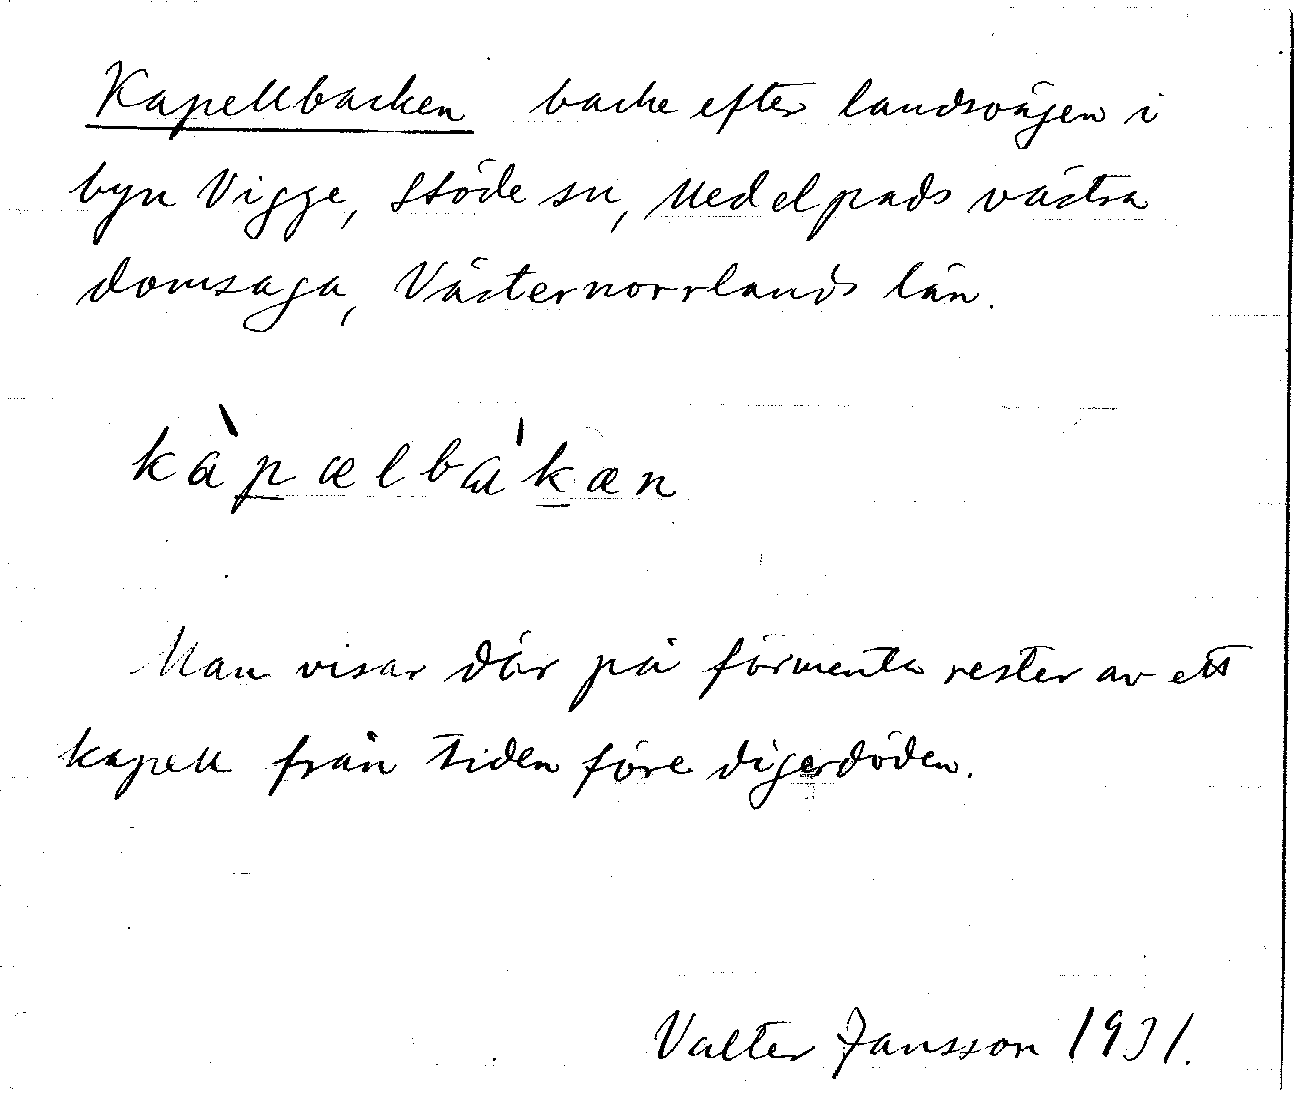 Kapellbacken backe efter landsvägen i
byn Vigge, Stöde sn, Medelpads västra
domsaga, Västernorrlands län.
kàpælbákæn
Man visar där på förmenta rester av ett
kapell från tiden före digerdöden.
Valter Jansson 1931.